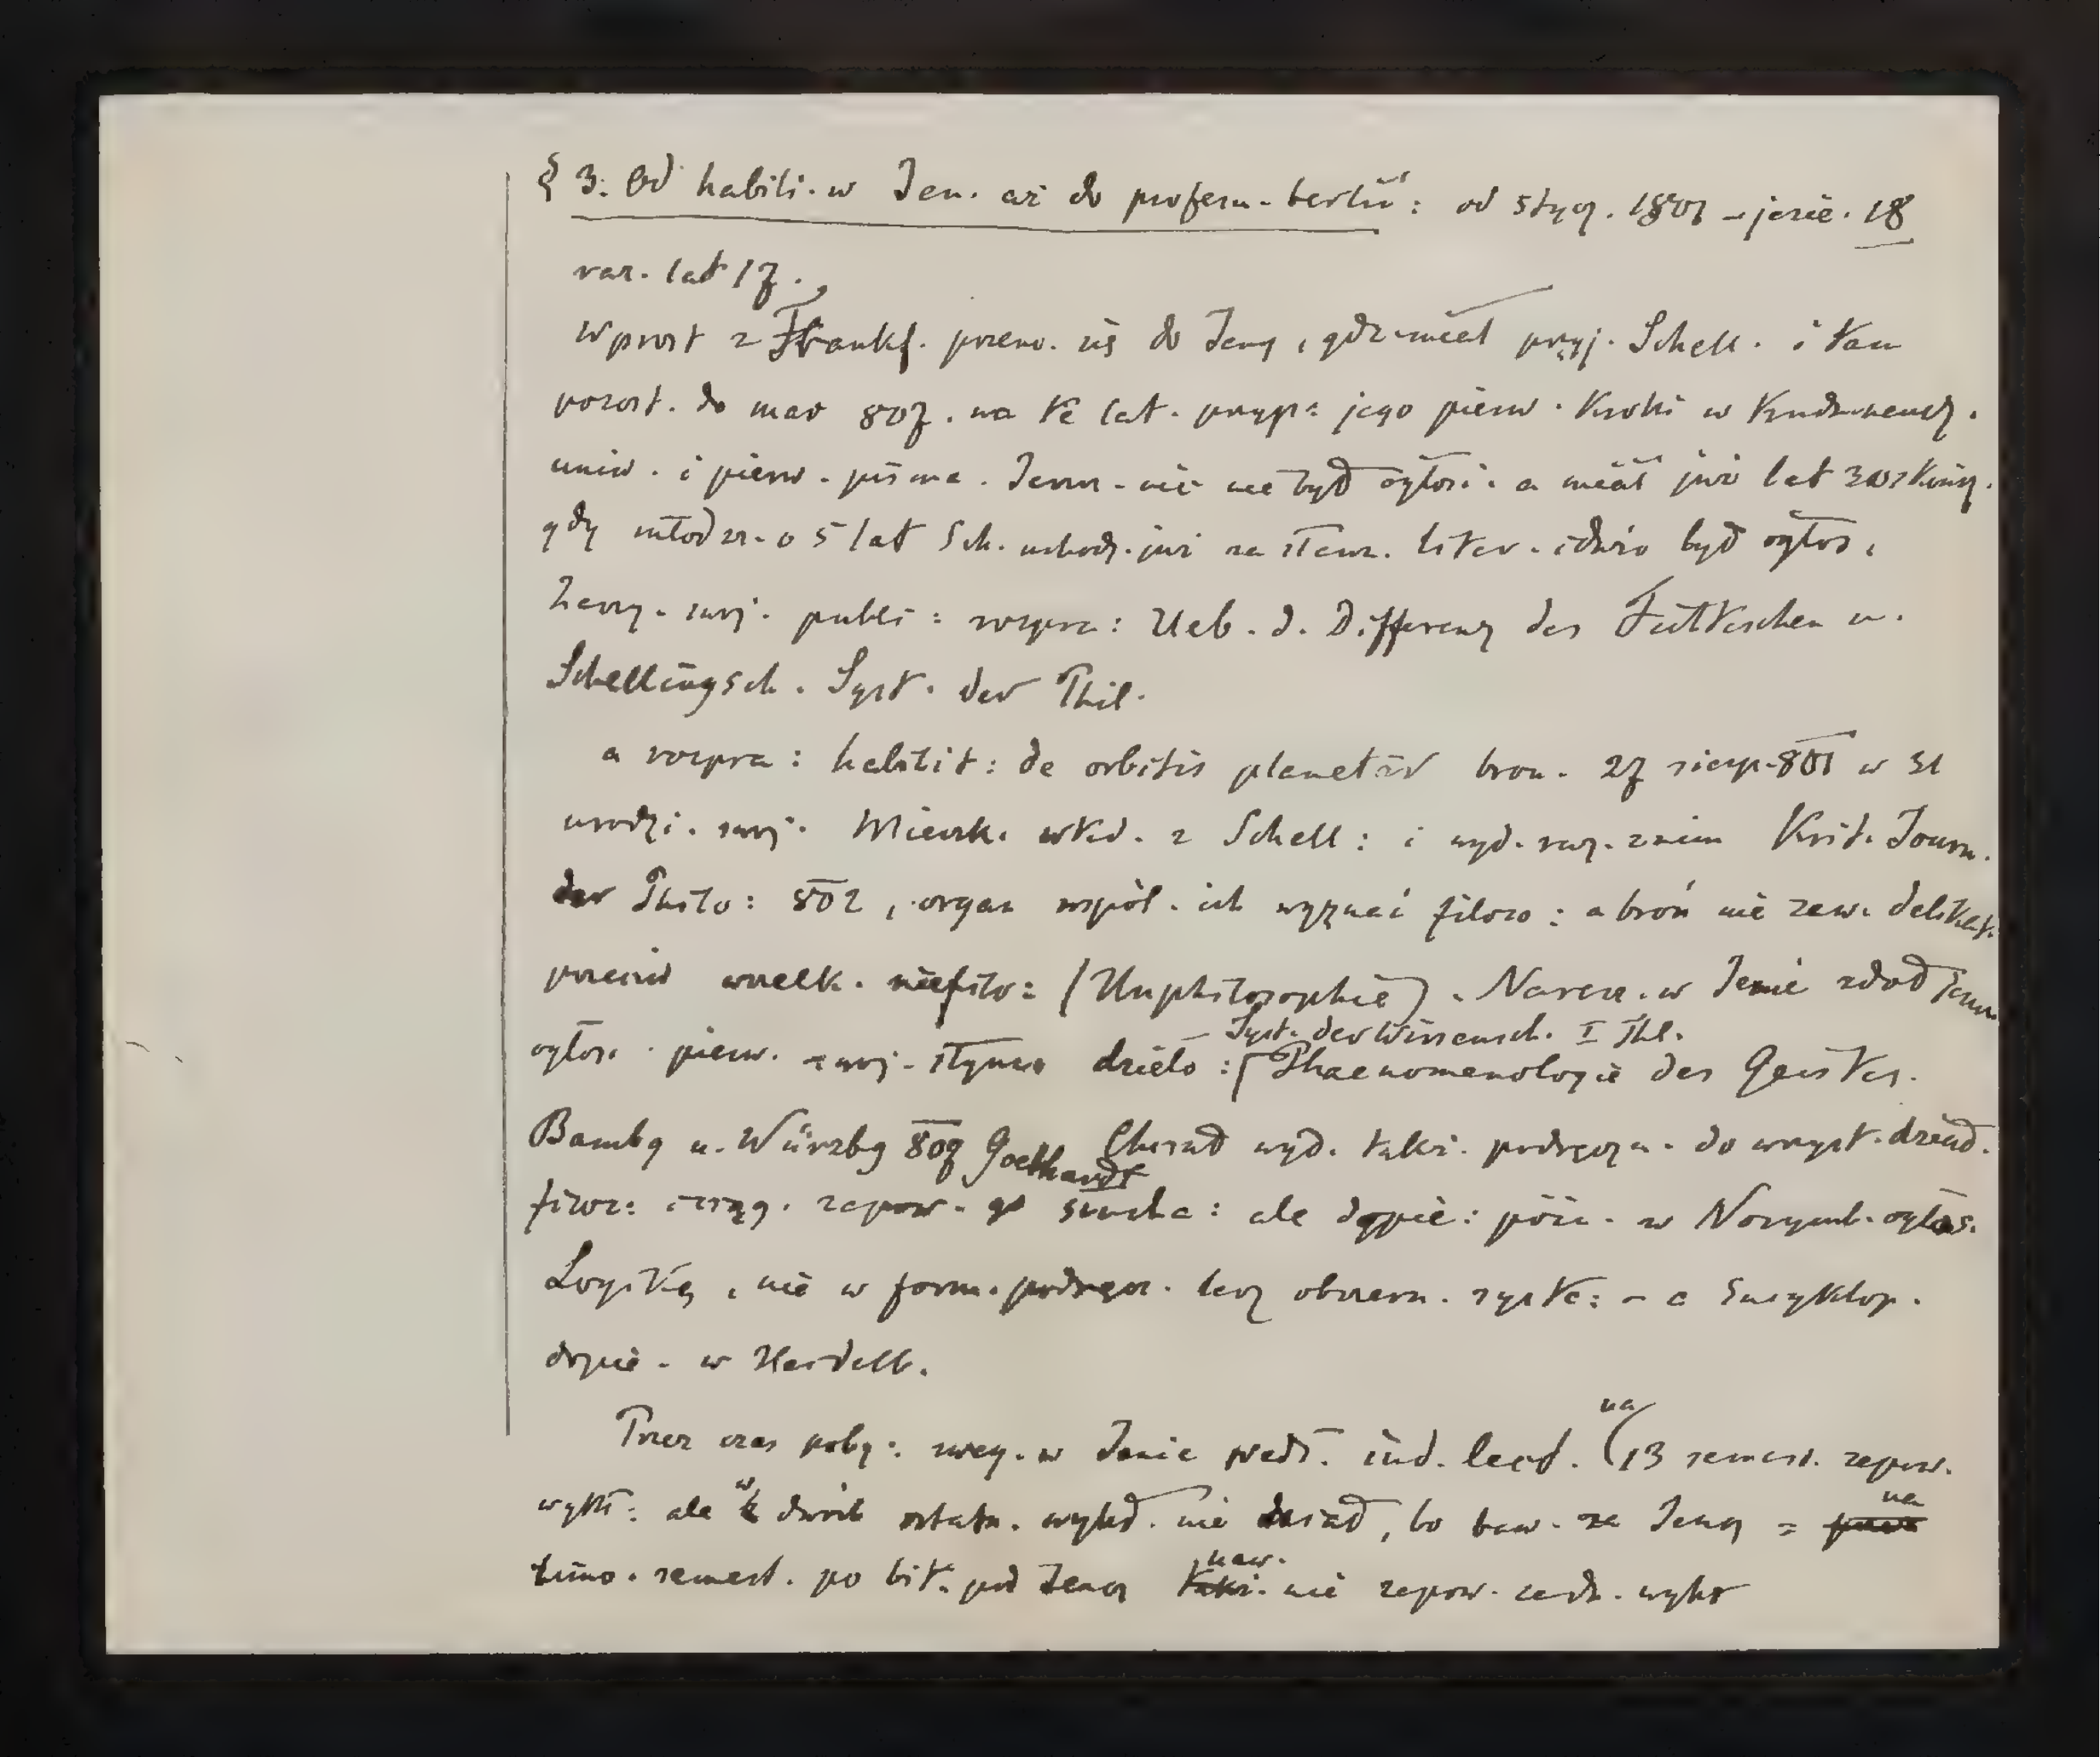 § 3. Od habili. w Jen. aż do profesu. berliń: od stycz. 1801 – jesie. 18
raz. lat 17.
Wprost z Frankf. przen. się do Jeny, gdz. miał przyj. Schell. i tam
pozost. do mar 807. na te lat. przyp: jego pierw. kroki w
uniw. i pierw. pisma. nic nie był ogłosi. a miał już lat
gdy młodsz. o 5 lat Sch. uchodz. już za liter. był ogłos.
swoj. publi: rozpra: Ueb. d. Differenz des Fichteschen u.
Schellingsch. Syst. der Phil.
a rozpra: habilit: de orbitis planetar bron. 27 sierp. 801 w 31
urodzi. swoj. Mieszk. wtd. z Schell: i wyd. raz. z nim Krit. Journ.
der Philo: 802, organ wspól. ich wyznać filozo: a broń nie zew. delikat.
przeciw wszelk. niefilo: (Unphilosophie). Naresz. w Jenie
ogłos. pierw. swoj. słynne dzieło: Syst. der Wissensch. I Thl.
(Phaenomenologie des Geistes.
Bambg u. Würzbg 807 Goebhardt Chciał wyd. także podręczn. do wszyst. dział.
filoz: i ciąg. zapow. go słucha: ale dopie: późn. w Norymb. ogłos.
Logikę, nie w form. podręcz. lecz obszern. syste: – a Encyklop.
dopie. w Heidelb.
Przez czas poby: sweg. w Jenie wedł. ind. lect. na (13 semest. zapow.
wykł: ale w dwóch ostatn. wykł. nie miał, bo baw. za Jeną = na
zimo. semest. po bit. pod Jeną naw. nie zapow. żadn. wykł